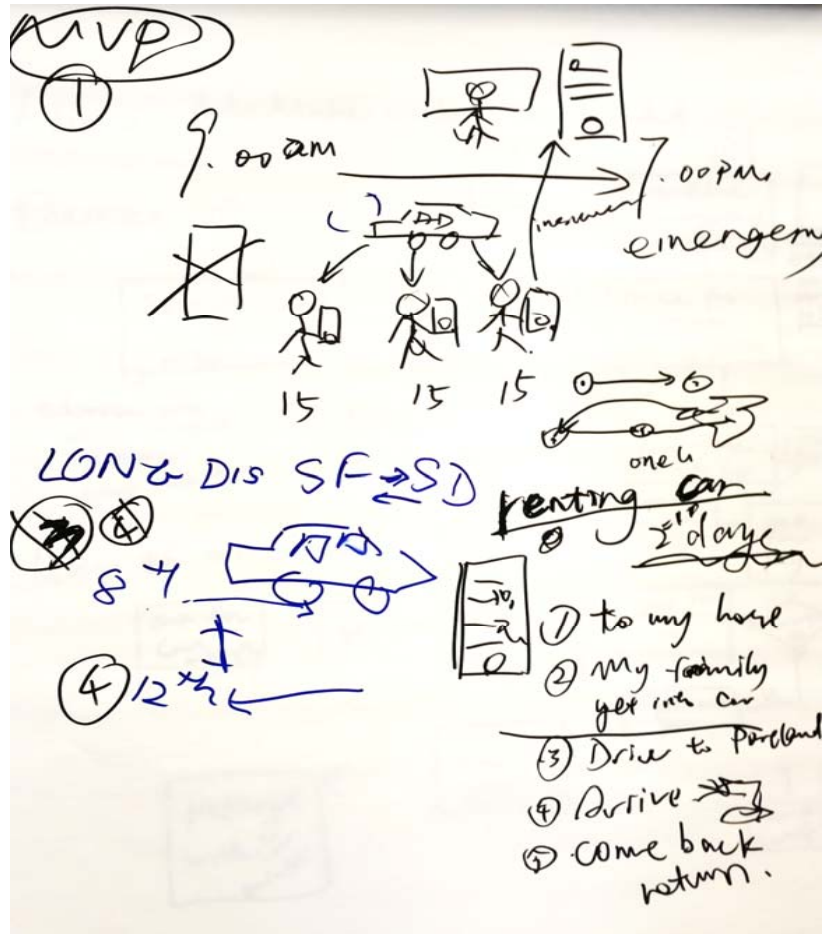 MVP
1
9.00am
7.00pm
emergency
15 15 15
LONG DIS SF SD
one
renting car
2 days
8
① to my house
② My family
get into car
4 12
③ Drive to Portland
④ Arrive
⑤ come back
return.